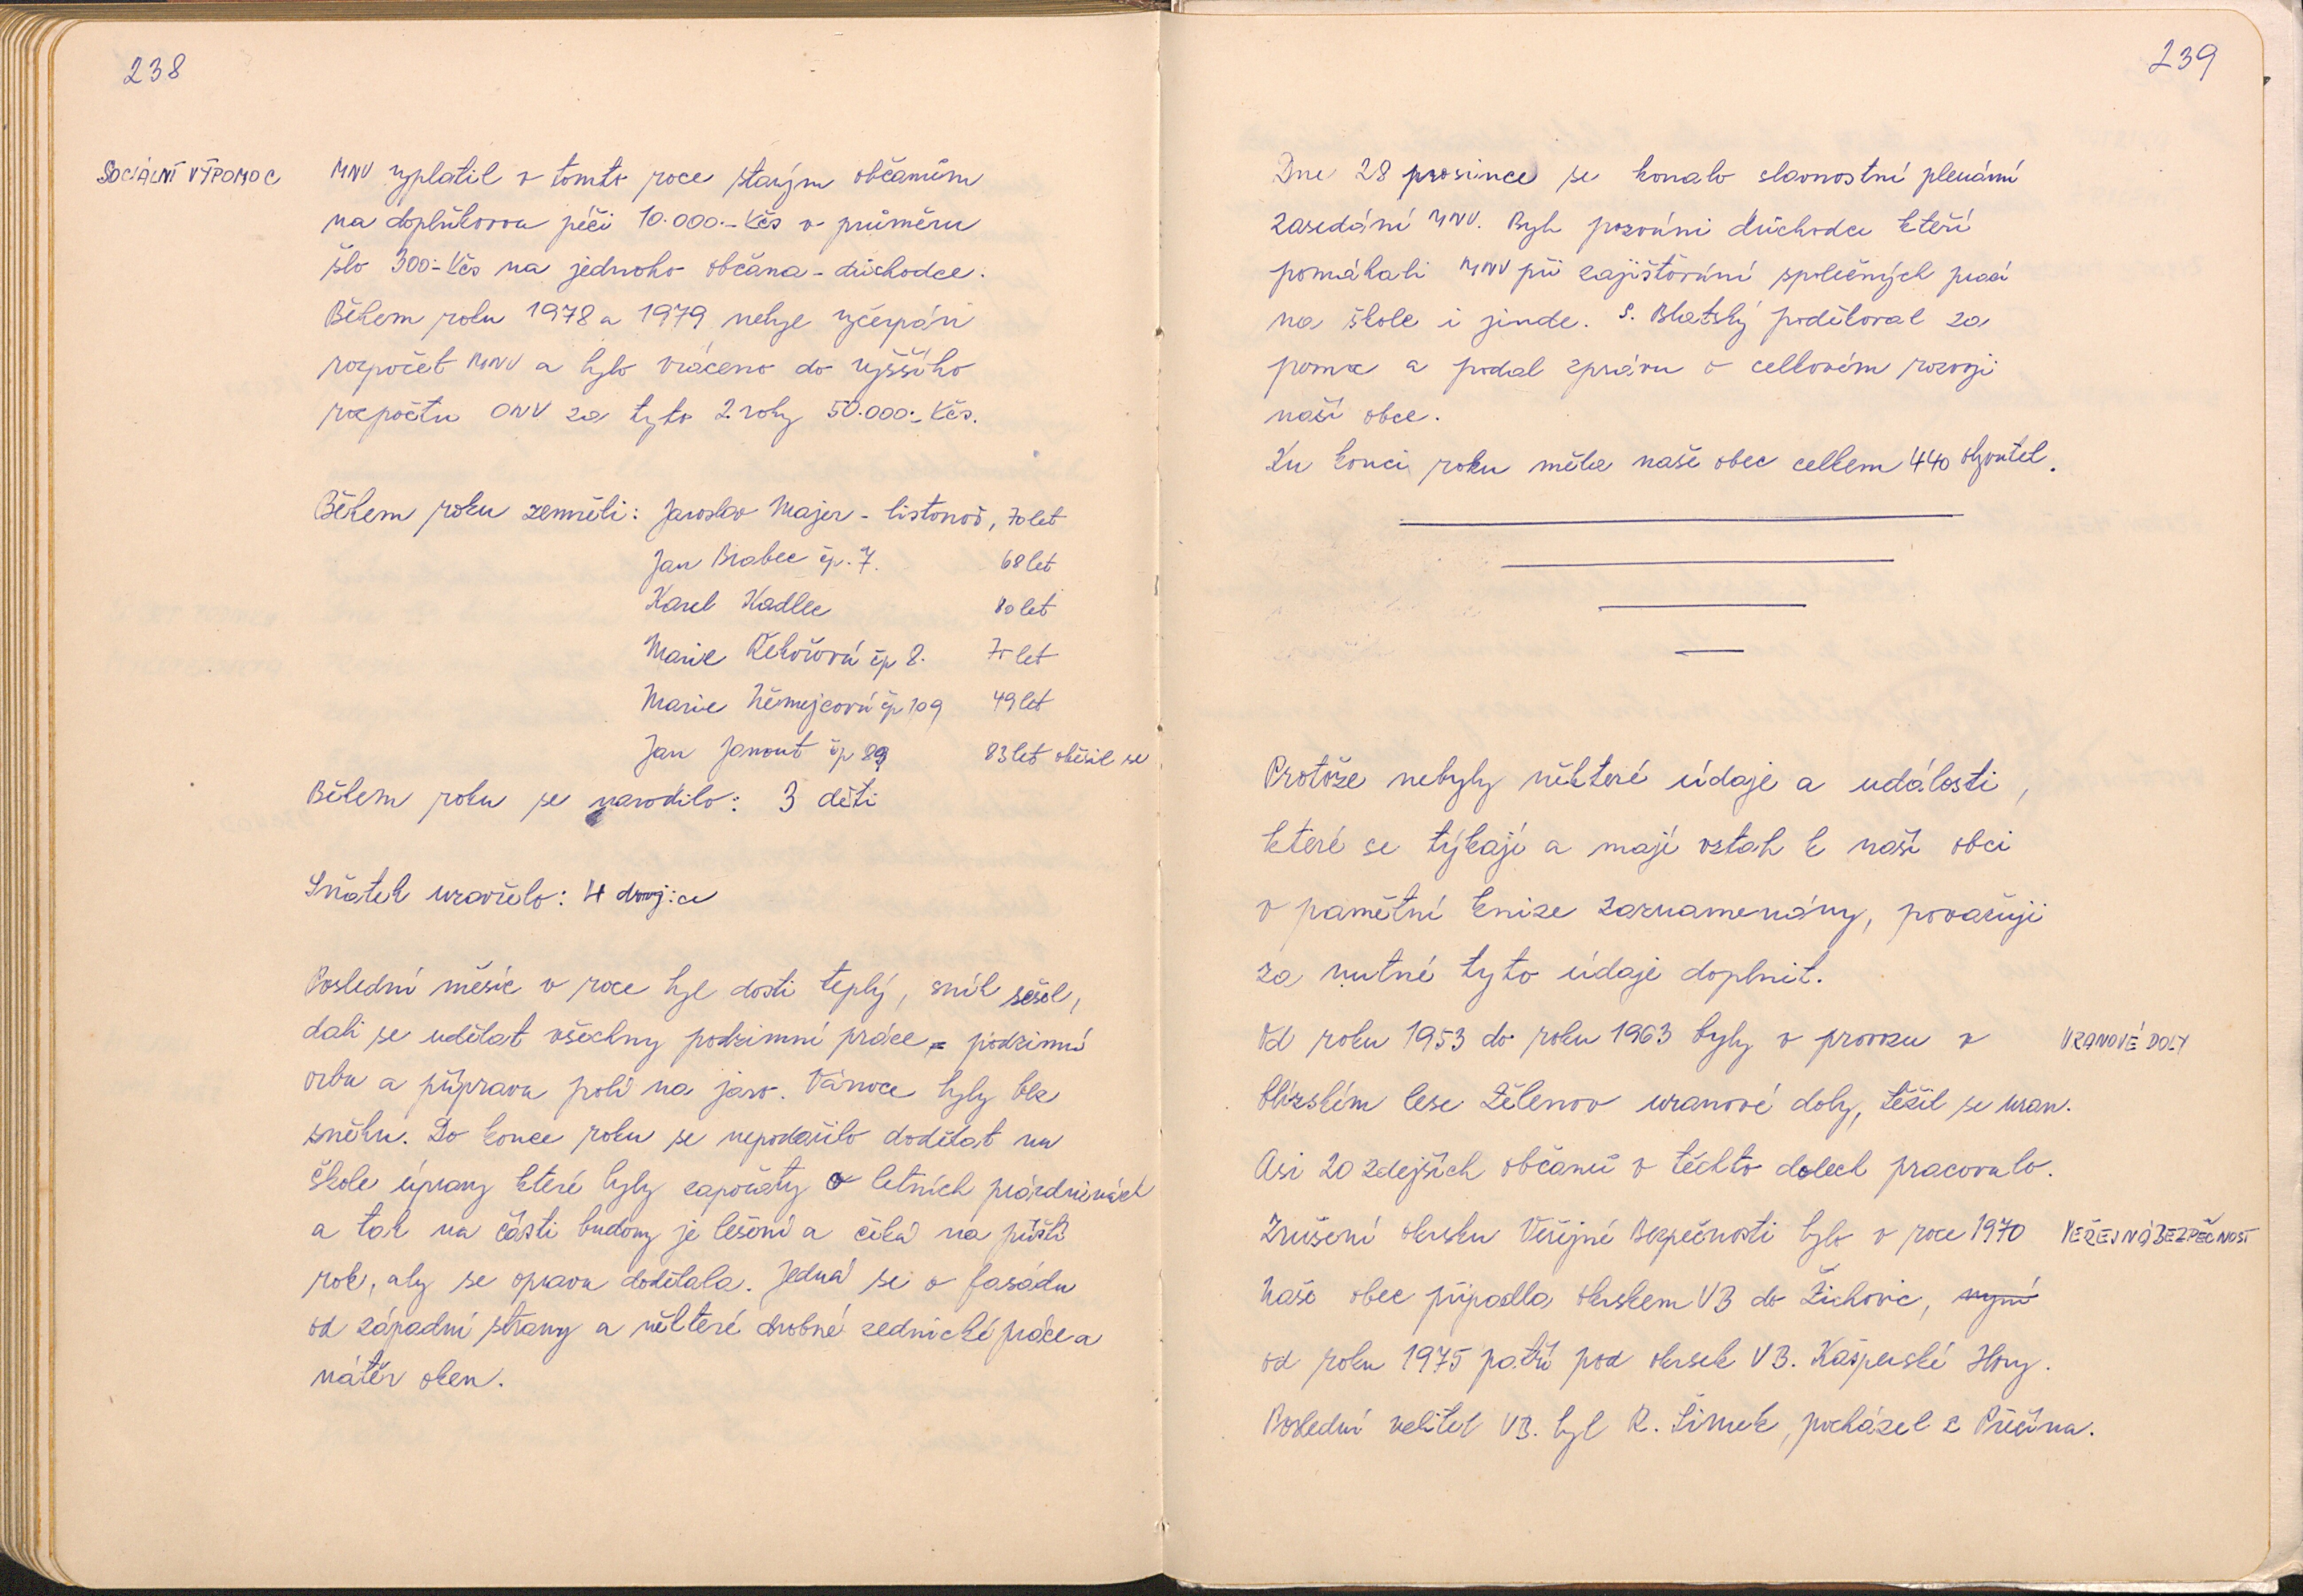 238
SOCIÁLNÍ VÝPOMOC
MNV vyplatil v tomto roce starým občanům
na doplňkovou péči 10.000.- Kčs v průměru
šlo 300.- Kčs na jednoho občana - důchodce.
Během roku 1978 a 1979 nebyl vyčerpán
rozpočet MNV a bylo vráceno do vyššího
rozpočtu ONV za tyto 2 roky 50.000.- Kčs.
Během roku zemřeli: Jaroslav Majer - listonoš, 70 let
Jan Brabec čp. 7. 68 let
Karel Kadlec 80 let
Marie Řehořová čp 8. let
Marie Němejcová čp 109 49 let
Jan Janout čp 89 83 let oběsil se
Během roku se narodilo: 3 děti
Sňatek uzavřelo: 4 dvojice
Poslední měsíc v roce byl dosti teplý, sníh sešel,
dali se udělat všechny podzimní práce = podzimní
orba a příprava polí na jaro. Vánoce byly bez
sněhu. Do konce roku se nepodařilo dodělat na
škole úpravy které byly započaty o letních prázdninách
a tak na části budovy je lešení a čeká na příští
rok, aby se oprava dodělala. Jedná se o fasádu
od západní strany a některé drobné zednické práce a
nátěr oken.
239
Dne 28 prosince se konalo slavnostní plenární
zasedání MNV. Byli pozváni důchodci kteří
pomáhali MNV při zajišťování společných prací
na škole i jinde. S. Blatský poděkoval za
pomoc a podal zprávu o celkovém rozvoji
naší obce.
Ku konci roku měla naše obec celkem 440 obyvatel.
Protože nebyly některé údaje a události,
které se týkají a mají vztah k naší obci
v pamětní knize zaznamenány, považuji
za nutné tyto údaje doplnit.
Od roku 1953 do roku 1963 byly v provozu v
URANOVÉ DOLY
blízském lese Ždlenov uranové doly, těžil se uran.
Asi 20 zdejších občanů v těchto dolech pracovalo.
Zrušení okrsku Veřejné Bezpečnosti bylo v roce 1970
VEŘEJNÁ BEZPEČNOST
Naše obec připadla okrskem VB do Žichovic, nyní
od roku 1975 patří pod okrsek VB. Kašperské Hory.
Poslední velitel VB. byl R. Šimek, pocházel z Přečína.